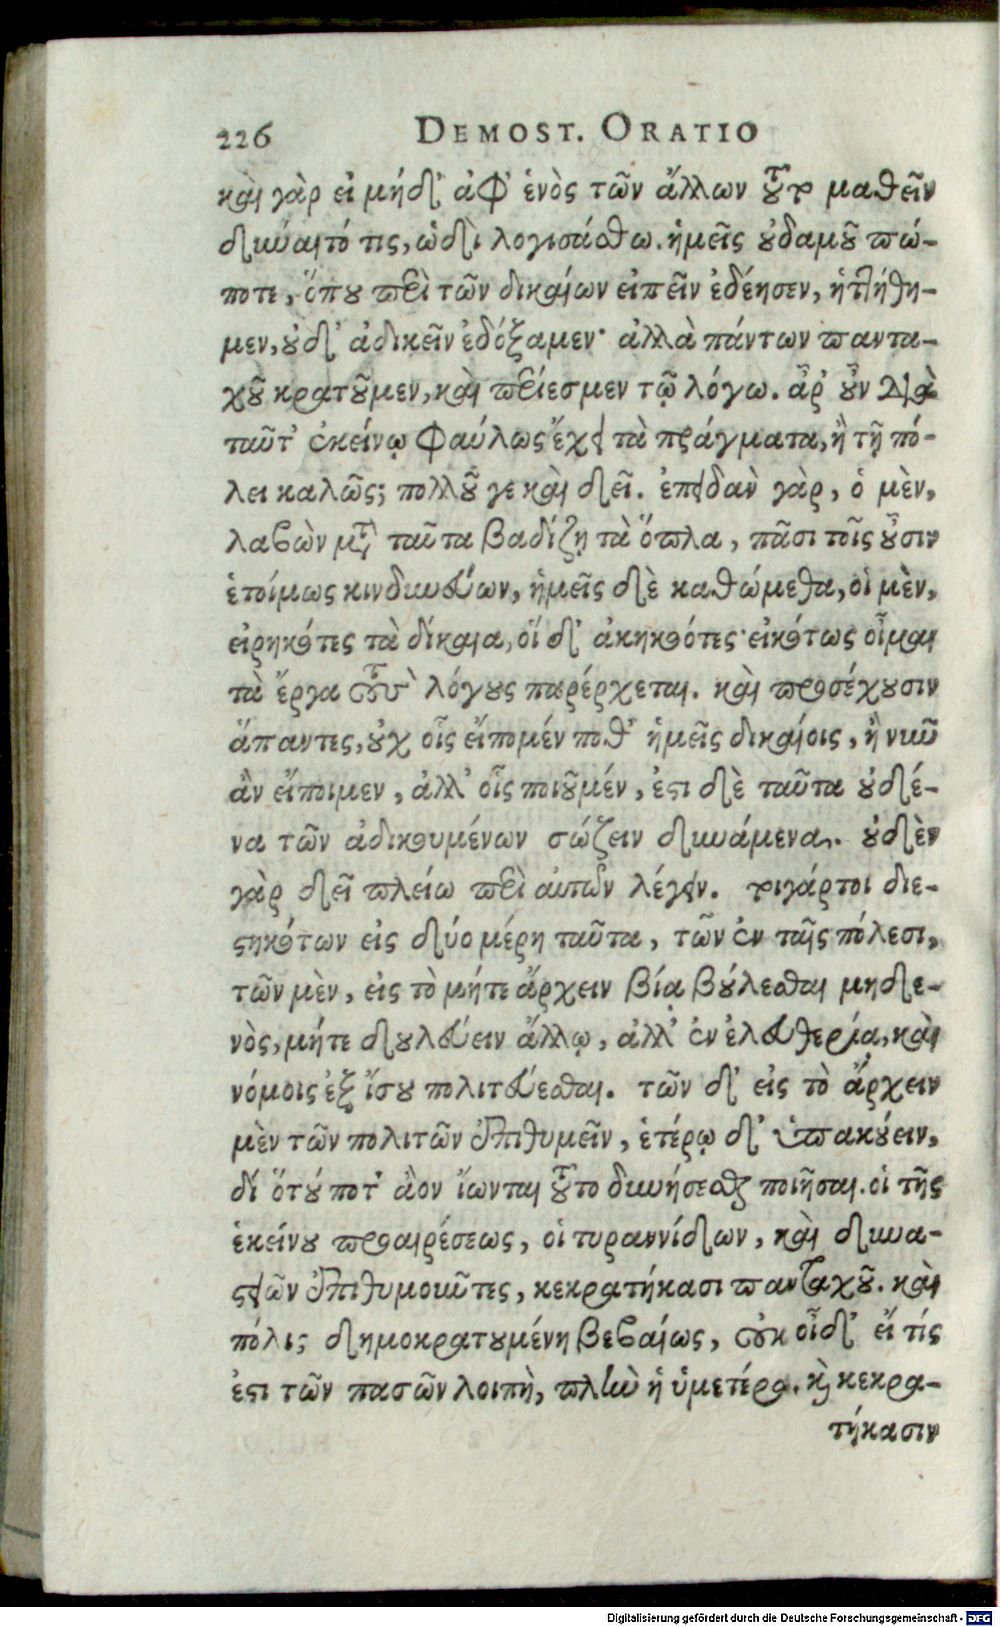 226 DEMOST. ORATIO
καὶ γὰρ εἰ μήδ' ἀφ' ἑνὸς τῶν ἄλλων τοῦτο μαθεῖν
δύναιτό τις, ὡδὶ λογισάσθω. ἡμεῖς οὐδαμοῦ πώ-
ποτε, ὅπου περὶ τῶν δικαίων εἰπεῖν ἐδέησεν, ἡττήθη-
μεν, οὐδ' ἀδικεῖν ἐδόξαμεν· ἀλλὰ πάντων παντα-
χοῦ κρατοῦμεν, καὶ περίεσμεν τῷ λόγῳ. ἆρ' οὖν διὰ
ταῦτ' ἐκείνῳ φαύλως ἔχει τὰ πράγματα, ἢ τῇ πό-
λει καλῶς; πολλοῦ γε καὶ δεῖ. ἐπειδὰν γὰρ, ὁ μὲν,
λαβὼν μετὰ ταῦτα βαδίζῃ τὰ ὅπλα, πᾶσι τοῖς οὖσιν
ἑτοίμως κινδυνεύων, ἡμεῖς δὲ καθώμεθα, οἱ μὲν,
εἰρηκότες τὰ δίκαια, οἵ δ' ἀκηκοότες· εἰκότως οἶμαι
τὰ ἔργα τοὺς λόγους παρέρχεται. καὶ προσέχουσιν
ἅπαντες, οὐχ οἷς εἴπομέν ποθ' ἡμεῖς δικαίοις, ἢ νῦν
ἂν εἴποιμεν, ἀλλ' οἷς ποιοῦμέν, ἐστι δὲ ταῦτα οὐδέ-
να τῶν ἀδικουμένων σώζειν δυνάμενα. οὐδὲν
γὰρ δεῖ πλείω περὶ αὐτῶν λέγειν. τοιγάρτοι διε-
στηκότων εἰς δύο μέρη ταῦτα, τῶν ἐν ταῖς πόλεσι,
τῶν μὲν, εἰς τὸ μήτε ἄρχειν βίᾳ βούλεσθαι μηδε-
νὸς, μήτε δουλεύειν ἄλλῳ, ἀλλ' ἐν ἐλευθερίᾳ, καὶ
νόμοις ἐξ ἴσου πολιτεύεσθαι. τῶν δ' εἰς τὸ ἄρχειν
μὲν τῶν πολιτῶν ἐπιθυμεῖν, ἑτέρῳ δ' ὑπακούειν,
δί ὅτού ποτ' ἂν οἴωνται τοῦτο δυνήσεσθαι ποιῆσαι. οἱ τῆς
ἐκείνου προαιρέσεως, οἱ τυραννίδων, καὶ δυνα-
στειῶν ἐπιθυμοῦντες, κεκρατήκασι πανταχοῦ. καὶ
πόλις δημοκρατουμένη βεβαίως, οὐκ οἶδ' εἴ τίς
ἐστι τῶν πασῶν λοιπὴ, πλὴν ἡ ὑμετέρα. καὶ κεκρα-
τήκασιν
Digitalisierung gefördert durch die Deutsche Forschungsgemeinschaft - DFG